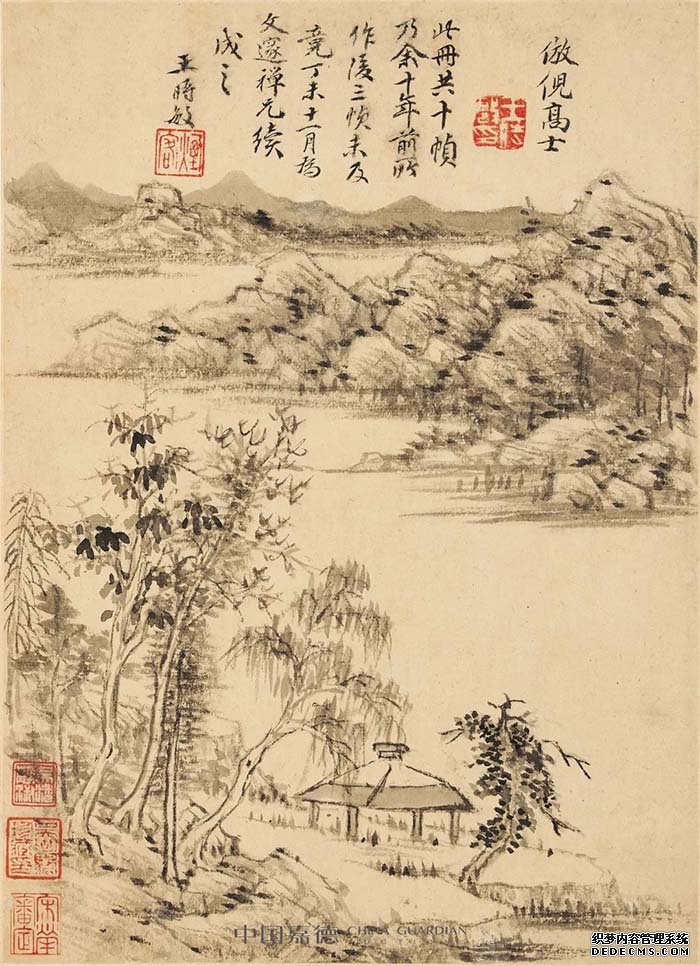 倣倪高士
此冊共十幀
乃余十年前所
作後三幀未及
竟丁未十一月為
文邃禅兄續
成之
王時敏
中国嘉德 CHINA GUARDIAN
织梦内容管理系统
DEDECMS.COM